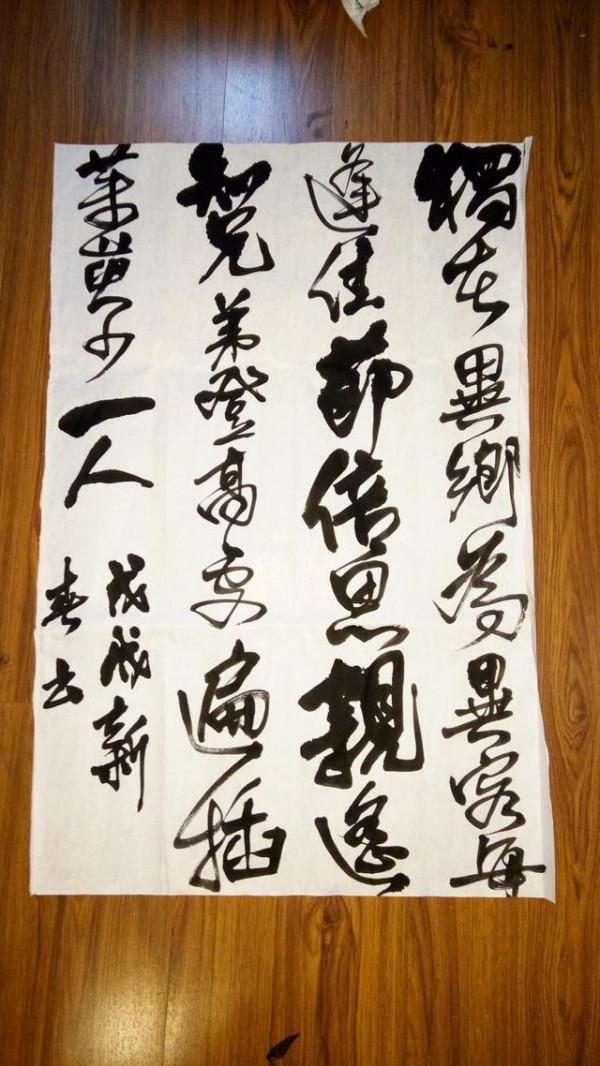 獨在異鄉為異客每
逢佳節倍思親遙
知兄弟登高處遍插
茱萸少一人
戊戌新
春书